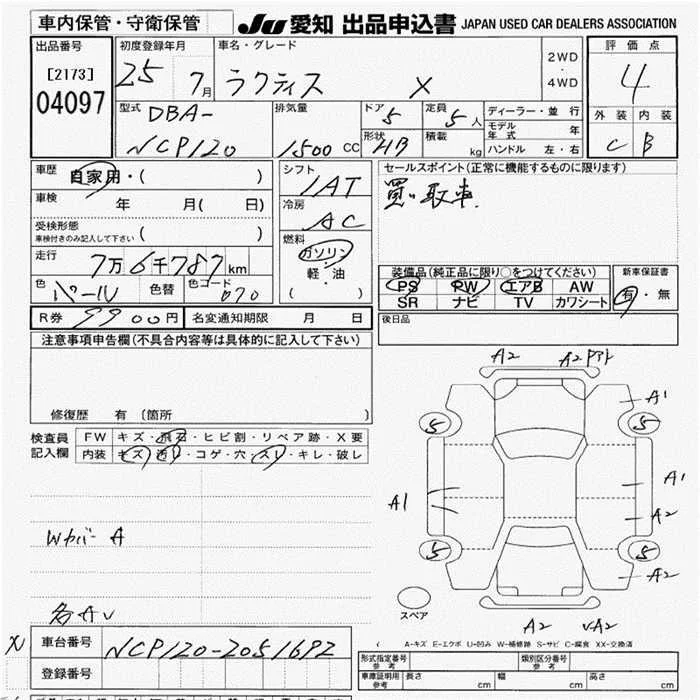 車内保管・守衛保管
JU 愛知 出品申込書 JAPAN USED CAR DEALERS ASSOCIATION
出品番号 [2173] 04097
初度登録年月 25 7月
車名・グレード ラクティス X
2WD・4WD
評価点 4
外装 C 内装 B
型式 DBA-NCP120
排気量 1500 CC
ドア 5 定員 5人
形状 HB 積載 kg
ディーラー・並行
モデル年式 年
ハンドル 左・右
車歴 自家用・( )
車検 年 月( 日)
受検形態 車検付きのみ記入して下さい ( )
走行 7万6千787km
色 パール 色替 色コード 070
シフト IAT
冷房 AC
燃料 ガソリン・軽・油 ( )
セールスポイント(正常に機能するものに限ります)
買い取車.
装備品(純正品に限り○をつけてください)
PS PW エアB AW
SR ナビ TV カワシート
新車保証書 有・無
R券 9900円 名変通知期限 月 日
後日品
注意事項申告欄(不具合内容等は具体的に記入して下さい)
修復歴 有 〔箇所 〕
検査員記入欄
FW キズ・飛石・ヒビ割・リペア跡・X要
内装 キズ・汚れ・コゲ・穴・スレ・キレ・破レ
Wカバー A
各AU
A2 A2
A1
5 5
A1 A1
A2
5 5
A2
スペア
A2 A2
A-キズ E-エクボ U-凹み W-補修跡 S-サビ C-腐食 XX-交換済
車台番号 NCP120-2051692
登録番号
形式指定番号 参考
類別区分番号 参考
車庫証明用 参考 長さ cm 幅 cm 高さ cm